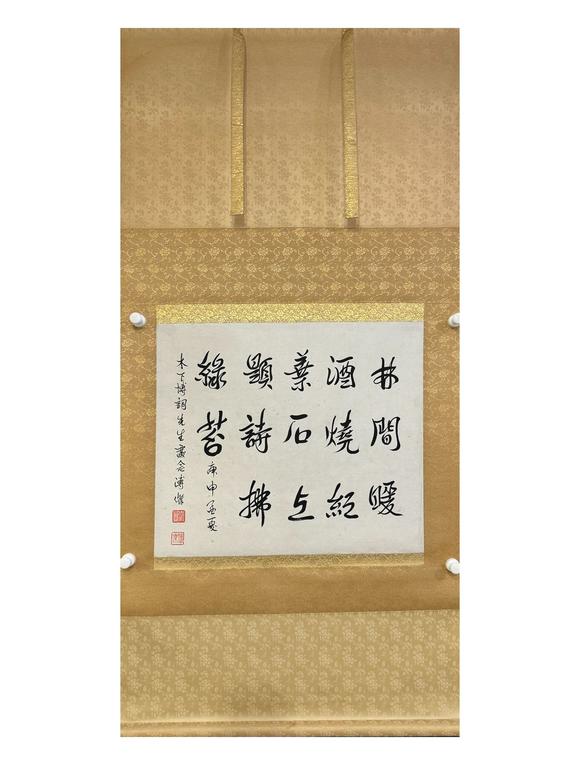 林間暖
酒燒紅
葉石上
題詩拂
綠苔
庚申孟夏
木下博詞先生念溥傑